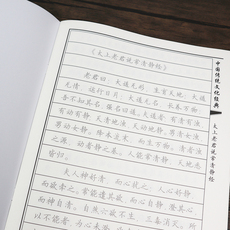 《太上老君说常清静经》
老君曰：大道无形，生育天地；大道
无情，运行日月；大道无名，长养万物；
吾不知其名，强名曰道。
男动女静。降本流末，而生万物。清者浊
之源，动者静之基。人能常清静，天地悉
皆归。
夫人神好清，而心扰之；人心好静，
而欲牵之。常能遣其欲，而心自静，澄其心
而神自清。自然六欲不生，三毒消灭。所
以不能者，为心未澄，
中国传统文化经典
太上老君说常清静经